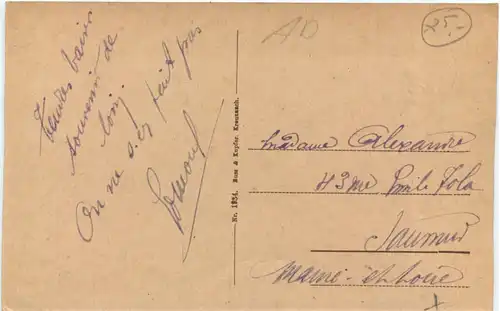 Tendres baisers
souvenir de
loin
On ne s'y fait pas
Nr. 1934. Ross & Kupfer, Kreuznach.
AD
25.-
Madame Alexandre
43 rue Emile Zola
Saumur
Maine-et-Loire